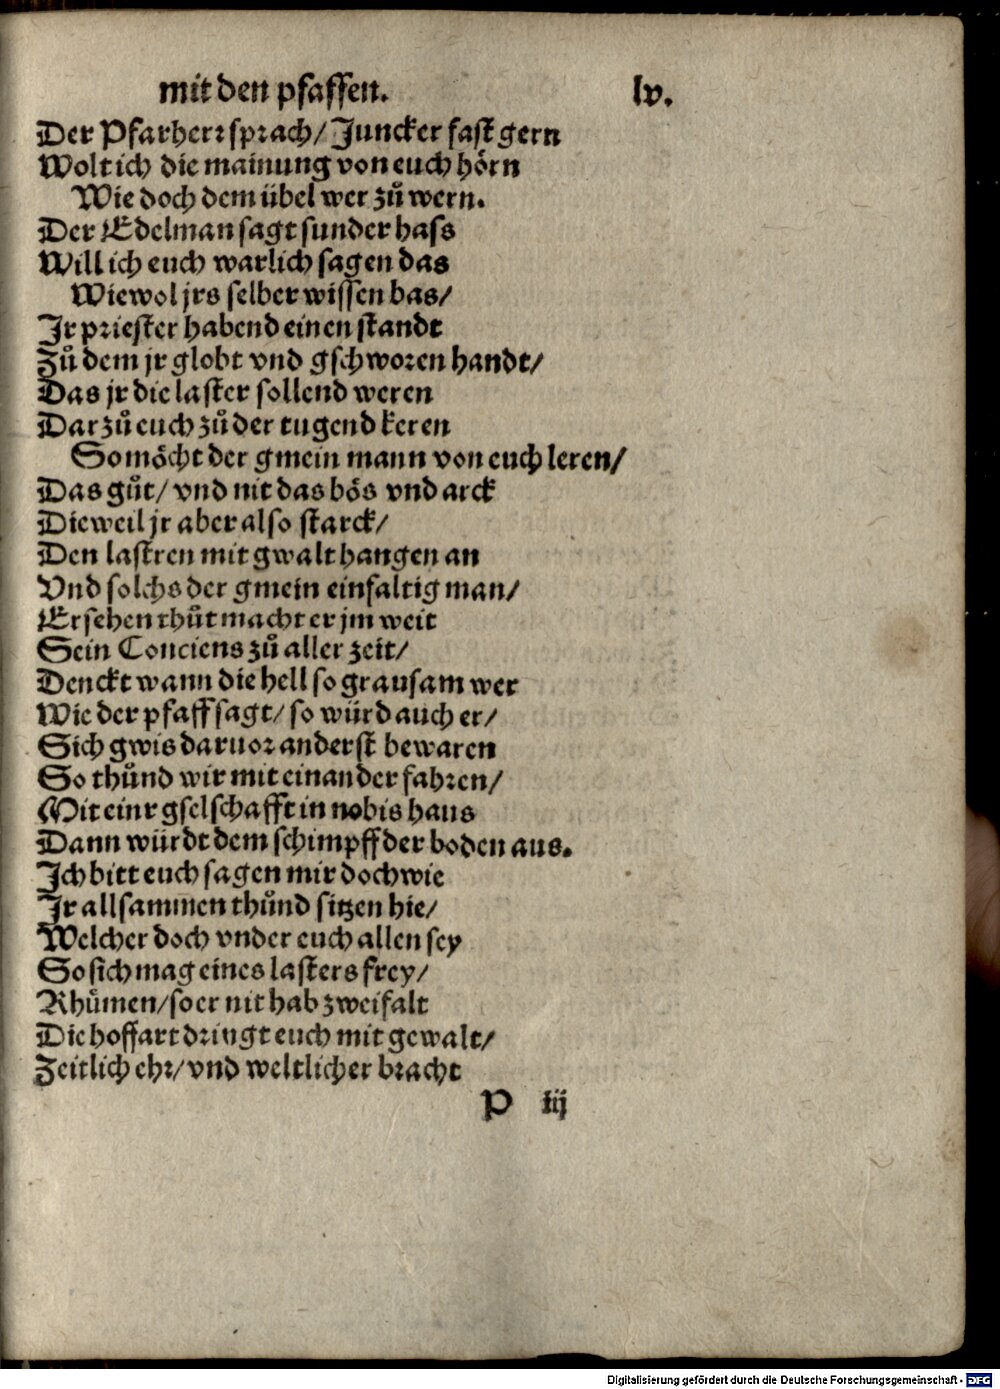 mit den pfaffen. lv.
Der Pfarherr sprach/ Juncker fast gern
Wolt ich die mainung von euch hörn
Wie doch dem übel wer zů wern.
Der Edelman sagt sunder hass
Will ich euch warlich sagen das
Wiewol jrs selber wissen bas/
Jr priester habend einen standt
Zů dem jr globt vnd gschworen handt/
Das jr die laster sollend weren
Dar zů euch zů der tugend keren
So möcht der gmein mann von euch leren/
Das gůt/ vnd nit das bös vnd arck
Dieweil jr aber also starck/
Den lastren mit gwalt hangen an
Vnd solchs der gmein einfaltig man/
Ersehen thůt macht er jm weit
Sein Conciens zů aller zeit/
Denckt wann die hell so grausam wer
Wie der pfaff sagt/ so würd auch er/
Sich gwis daruor anderst bewaren
So thůnd wir mit einander fahren/
Mit einr gselschafft in nobis haus
Dann würdt dem schimpff der boden aus.
Ich bitt euch sagen mir doch wie
Jr allsammen thůnd sitzen hie/
Welcher doch vnder euch allen sey
So sich mag eines lasters frey/
Rhůmen/ so er nit hab zweifalt
Die hoffart dringt euch mit gewalt/
Zeitlich ehr/ vnd weltlicher bracht
P iij
Digitalisierung gefördert durch die Deutsche Forschungsgemeinschaft - DFG